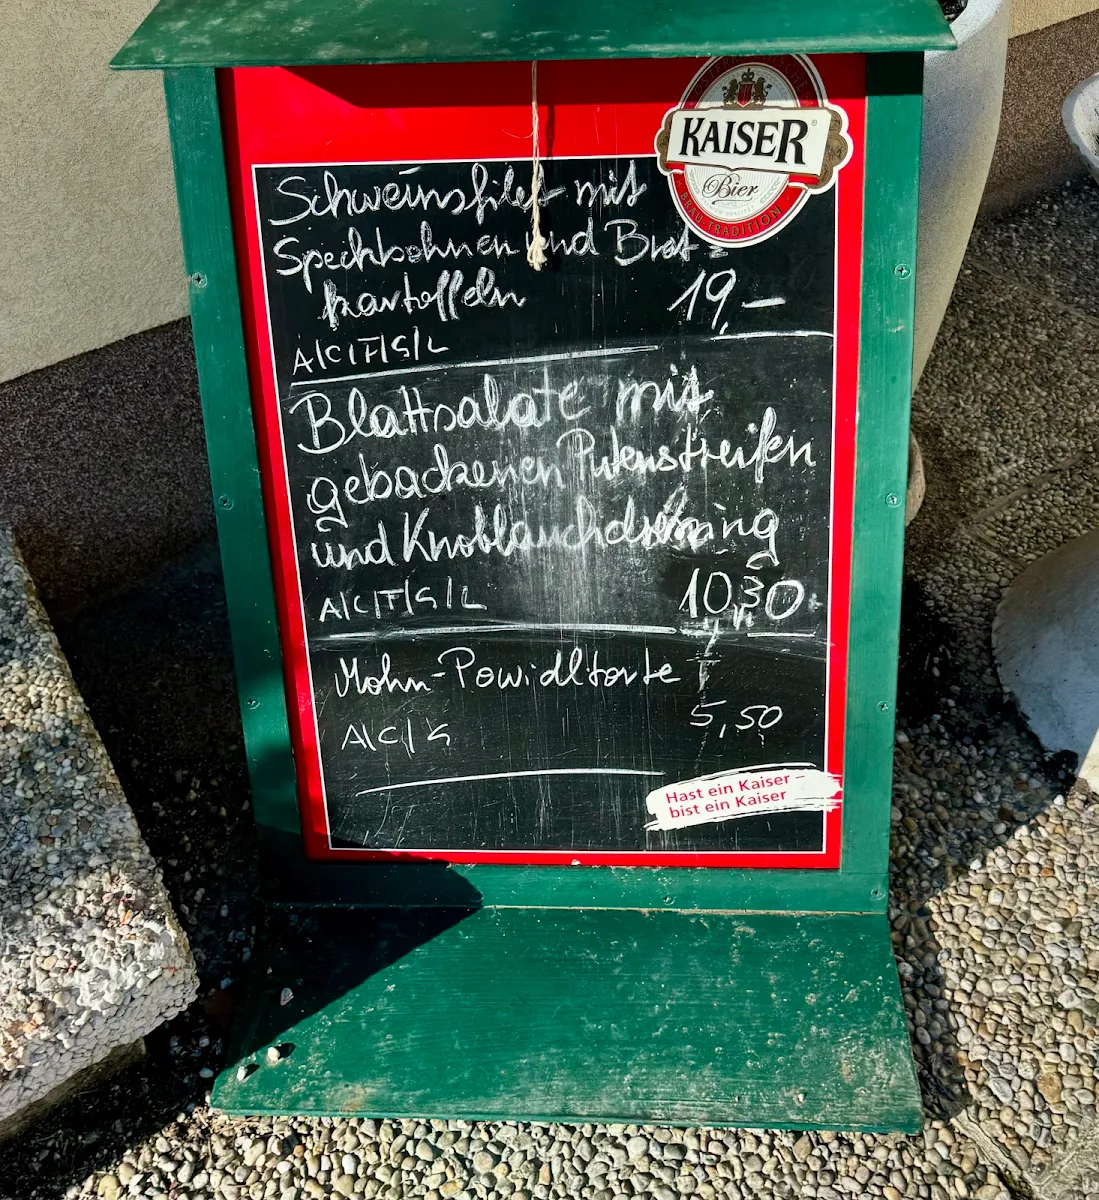 ÖSTERREICHISCHE
KAISER®
Bier
BRAU-TRADITION
Schweinsfilet mit
Speckbohnen und Brat=
kartoffeln
19,—
A/C/F/G/L
Blattsalate mit
gebackenen Putenstreifen
und Knoblauchdressing
A/C/F/G/L
10,30
Mohn-Powidltorte
5,50
A/C/G
Hast ein Kaiser –
bist ein Kaiser